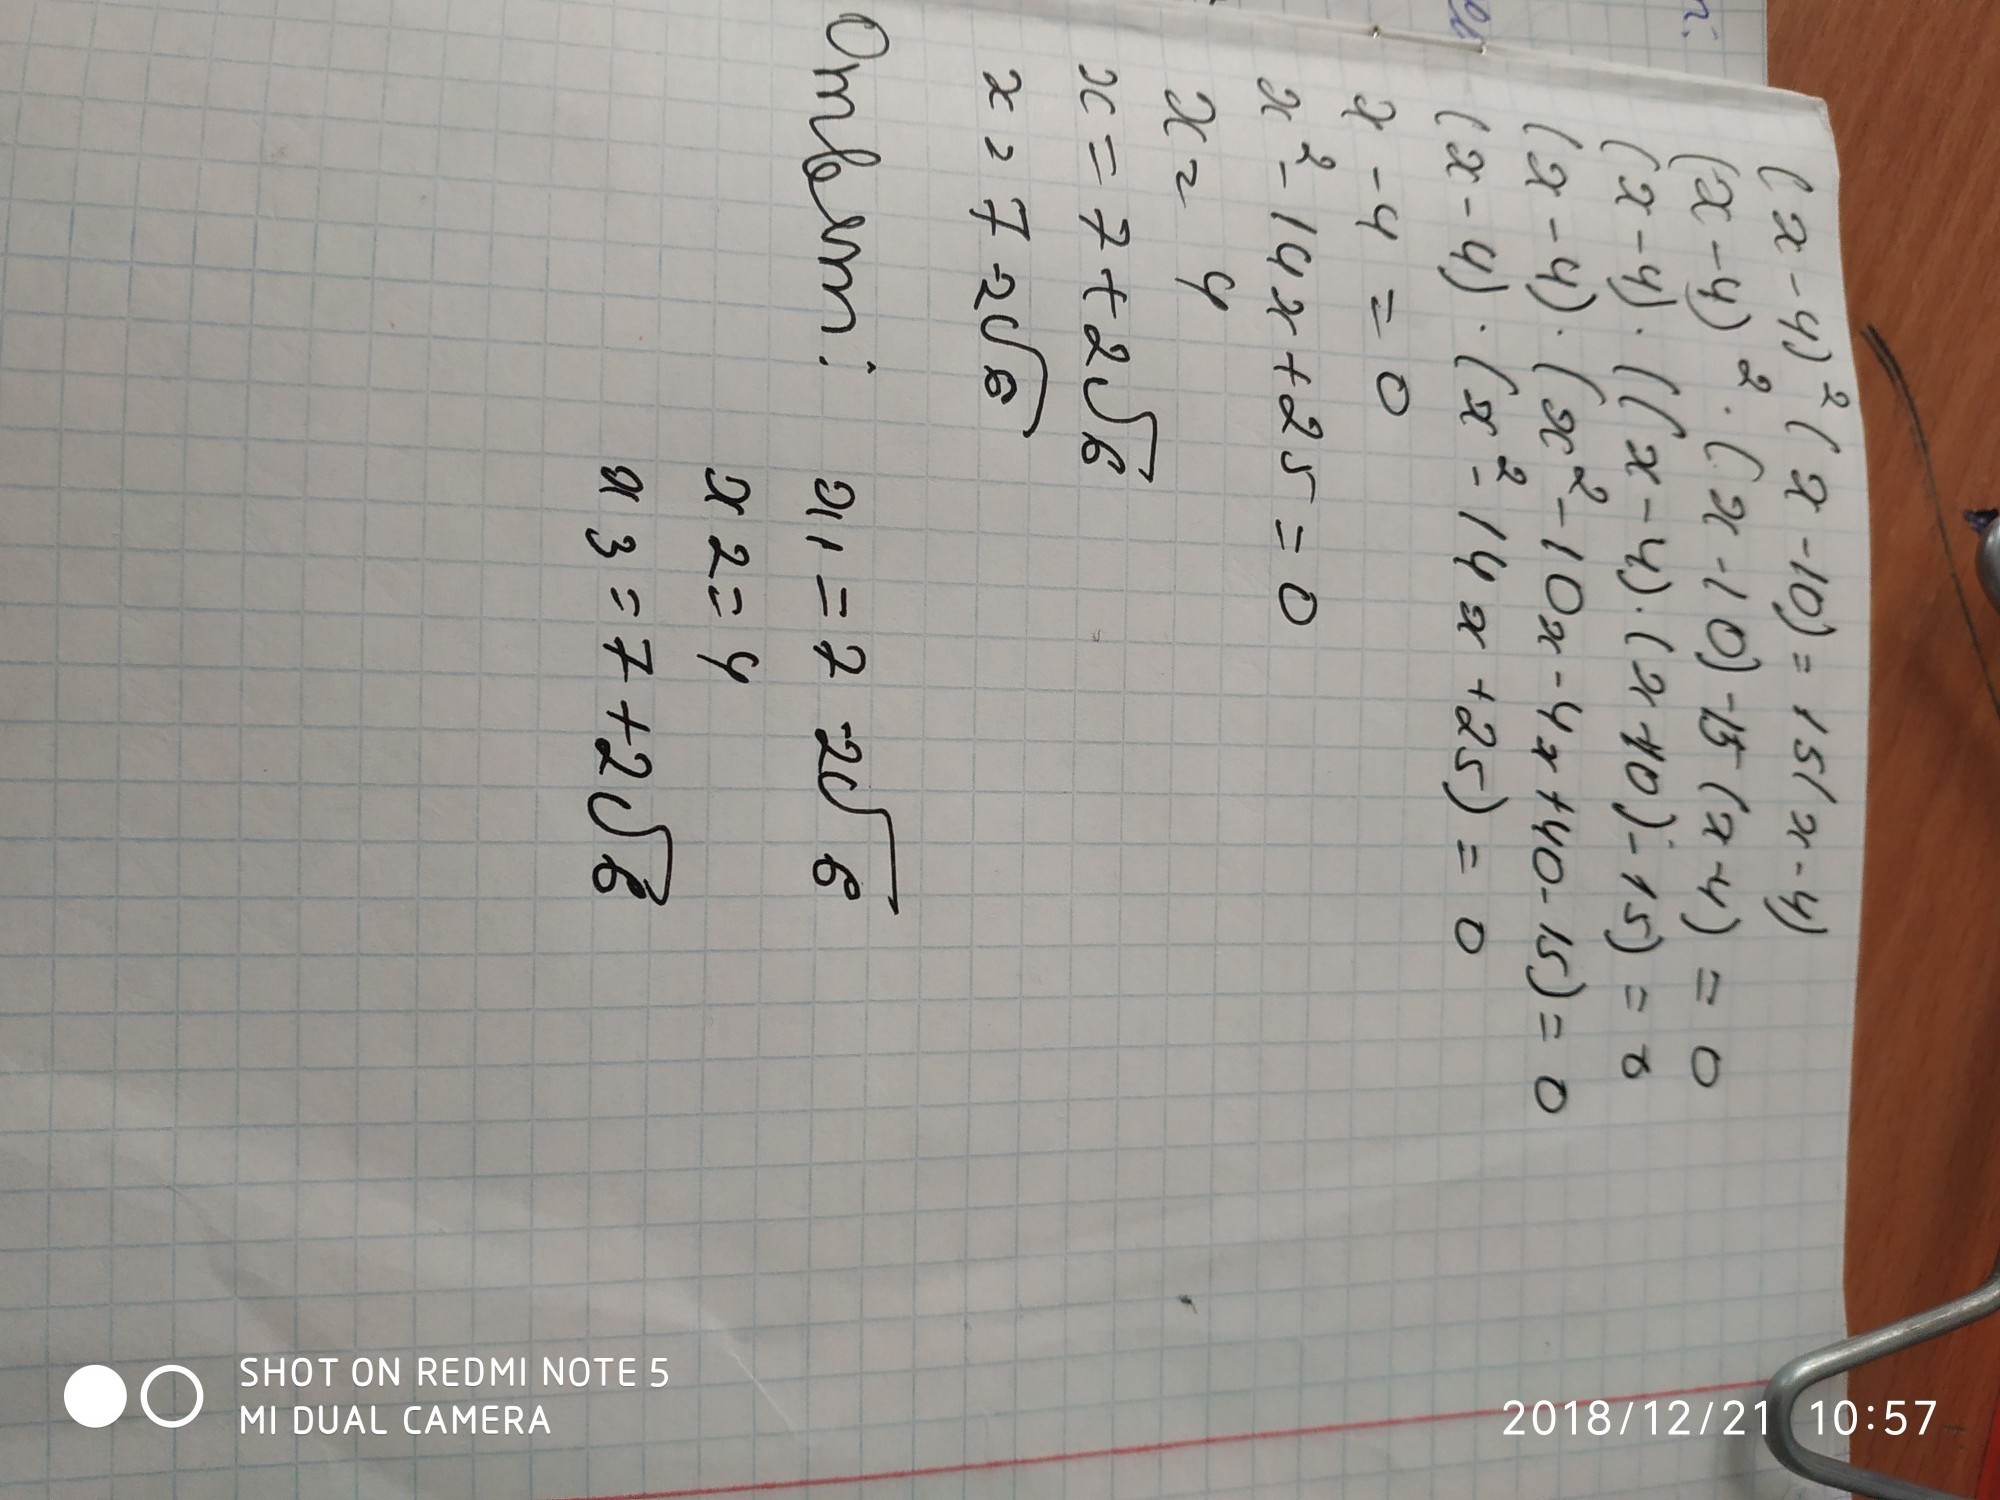 (x-4)²(x-10)=15(x-4)
(x-4)²·(x-10)-15(x-4)=0
(x-4)·((x-4)·(x-10)-15)=0
(x-4)·(x²-10x-4x+40-15)=0
(x-4)·(x²-14x+25)=0
x-4=0
x²-14x+25=0
x=4
x=7+2√6
x=7-2√6
Ответ:
x1=7-2√6
x2=4
x3=7+2√6
SHOT ON REDMI NOTE 5
MI DUAL CAMERA
2018/12/21 10:57